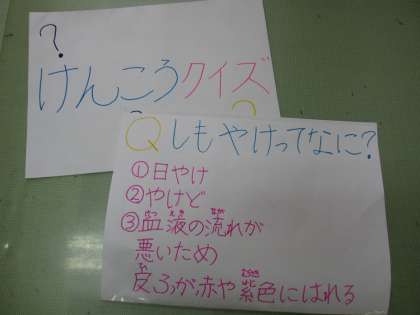 ?
けんこうクイズ
Q しもやけってなに?
①日やけ
②やけど
③血液の流れが
悪いため
皮ふが、赤や紫色にはれる